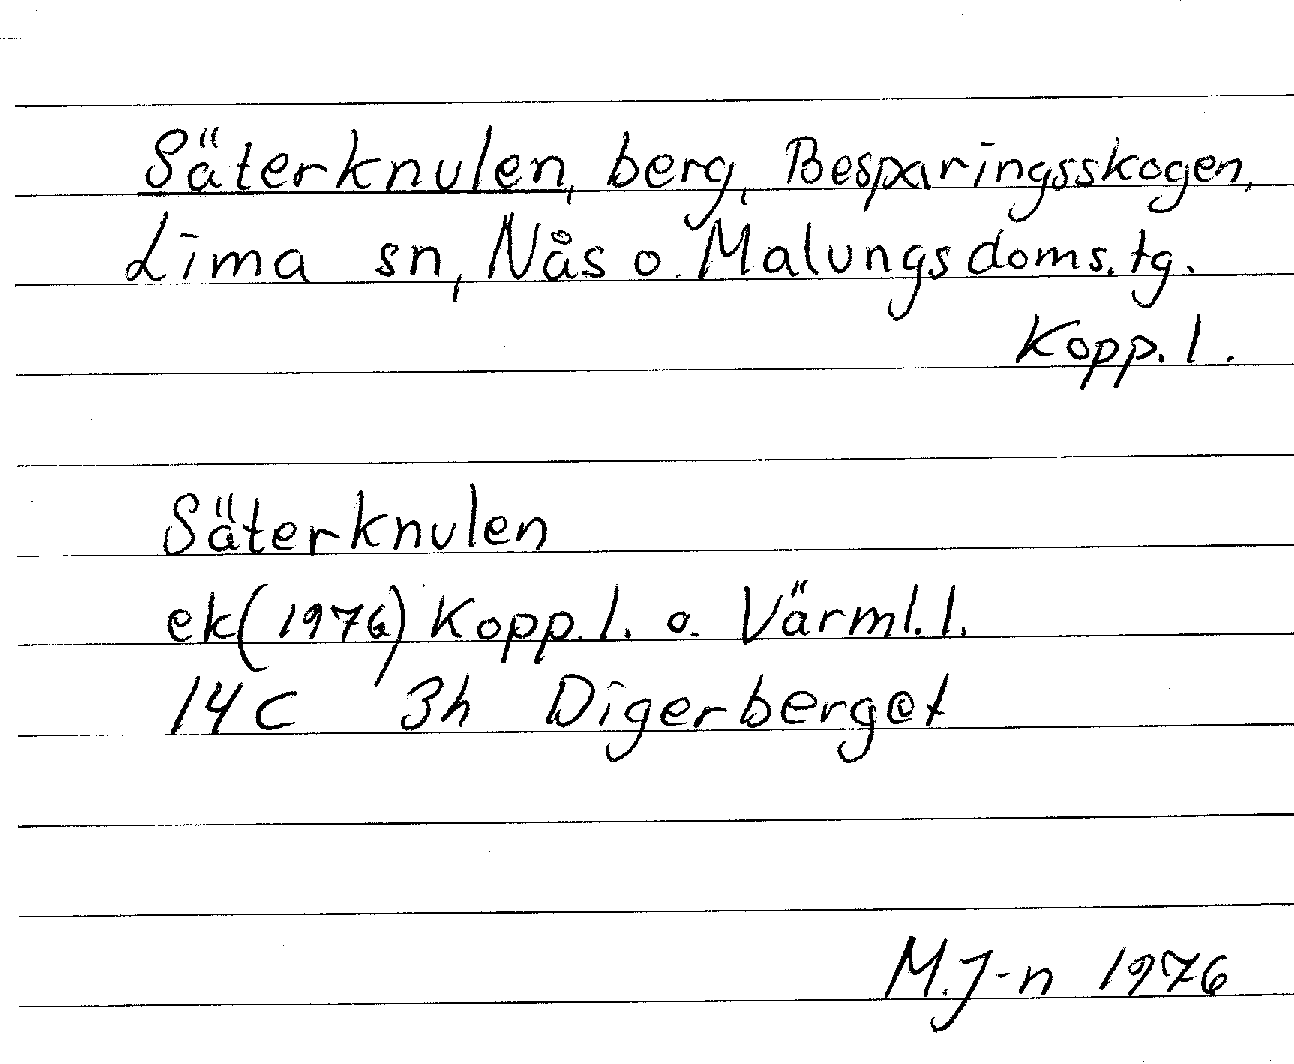 Säterknulen, berg, Besparingsskogen,
Lima sn, Nås o. Malungs doms. tg.
Kopp. l.
Säterknulen
ek (1976) Kopp. l. o. Värml. l.
14 C 3h Digerberget
M. J-n 1976